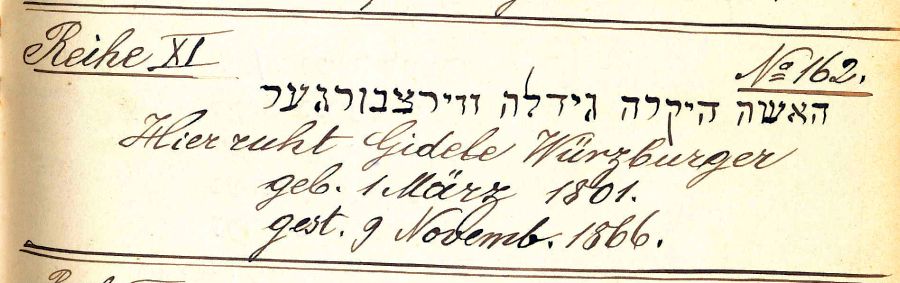 Reihe XI No 162.
האשה היקרה גידלה ווירצבורגער
Hier ruht Gidele Würzburger
geb. 1 März 1801.
gest. 9 Novemb. 1866.